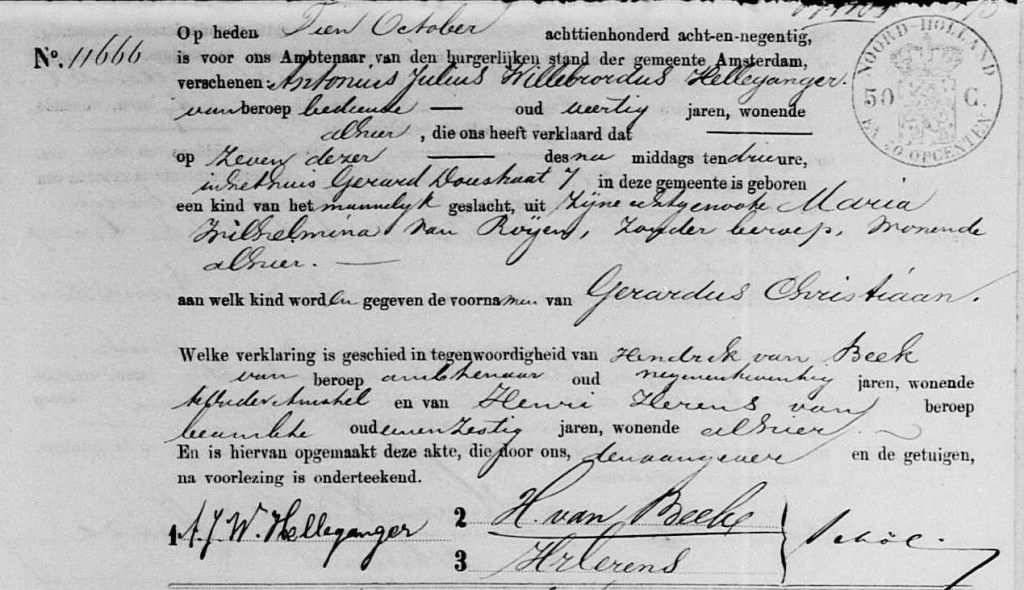 No. 11666
Op heden Tien October achttienhonderd acht-en-negentig,
is voor ons Ambtenaar van den burgerlijken stand der gemeente Amsterdam,
verschenen: Antonius Julius Willebrordus Helleganger.
van beroep bediende — oud veertig jaren, wonende
alhier, die ons heeft verklaard dat
op Zeven dezer des na middags ten drie ure,
in het huis Gerard Doustraat 7 in deze gemeente is geboren
een kind van het mannelijk geslacht, uit Zijne echtgenoote Maria
Wilhelmina van Royen, Zonder beroep, wonende
alhier. —
aan welk kind worden gegeven de voornamen van Gerardus Christiaan.
Welke verklaring is geschied in tegenwoordigheid van Hendrik van Beek
van beroep ambtenaar oud negenentwintig jaren, wonende
te Ouder Amstel en van Henri Herens van beroep
beambte oud eenenzestig jaren, wonende alhier.
En is hiervan opgemaakt deze akte, die door ons, den aangever en de getuigen,
na voorlezing is onderteekend.
1 A.J.W. Helleganger
2 H. van Beek
3
NOORD-HOLLAND
50 C.
EN 40 OPCENTEN